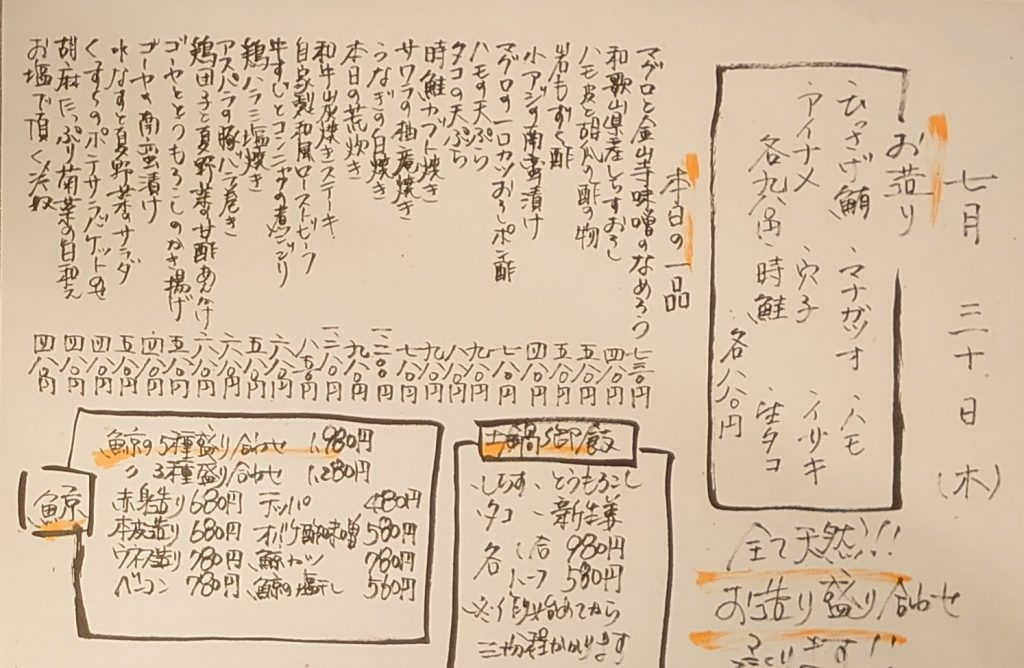 七月 三十日 (木)
お造り
・ひっさげ鮪 ・マナガツオ ・ハモ
・アイナメ ・穴子 ・イサキ
各九八〇円
・時鮭 ・生タコ
各八八〇円
全て天然!!
お造り盛り合わせ
本日の一品
マグロと金山寺味噌のなめろう 七三〇円
和歌山県産しらすおろし 四八〇円
ハモ皮と胡瓜の酢の物 五八〇円
岩もずく酢 五八〇円
小アジの南蛮漬け 四八〇円
マグロの一口カツおろしポン酢 七八〇円
ハモの天ぷら 九八〇円
タコの天ぷら 八八〇円
時鮭カブト焼き 九八〇円
サワラの柚庵焼き 七八〇円
うなぎの白焼き
本日の荒炊き 九八〇円
和牛炭焼きステーキ
自家製和風ローストビーフ
牛すじとコンニャクの煮こごり 六八〇円
鶏ハラミ塩焼き 五八〇円
アスパラの豚バラ巻き 六八〇円
鶏団子と夏野菜の甘酢あんかけ 六八〇円
ゴーヤととうもろこしのかき揚げ 五八〇円
ゴーヤの南蛮漬け 四八〇円
水なすと夏野菜のサラダ 五八〇円
くずらのポテサラ バケットのせ 四八〇円
胡麻たっぷり菊菜の白和え 四八〇円
お塩で頂く冷奴 四八〇円
土鍋御飯
・しらす ・とうもろこし
・タコ ・新生姜
各 一合 980円
ハーフ 580円
※作り始めてから
三十分程かかります
鯨
鯨の5種盛り合わせ 1,980円
〃 3種盛り合わせ 1,280円
赤身造り 680円 テッパ 480円
本皮造り 680円 オバケ酢味噌 580円
ウネス造り 780円 鯨カツ 780円
ベーコン 780円 鯨の塩干し 560円